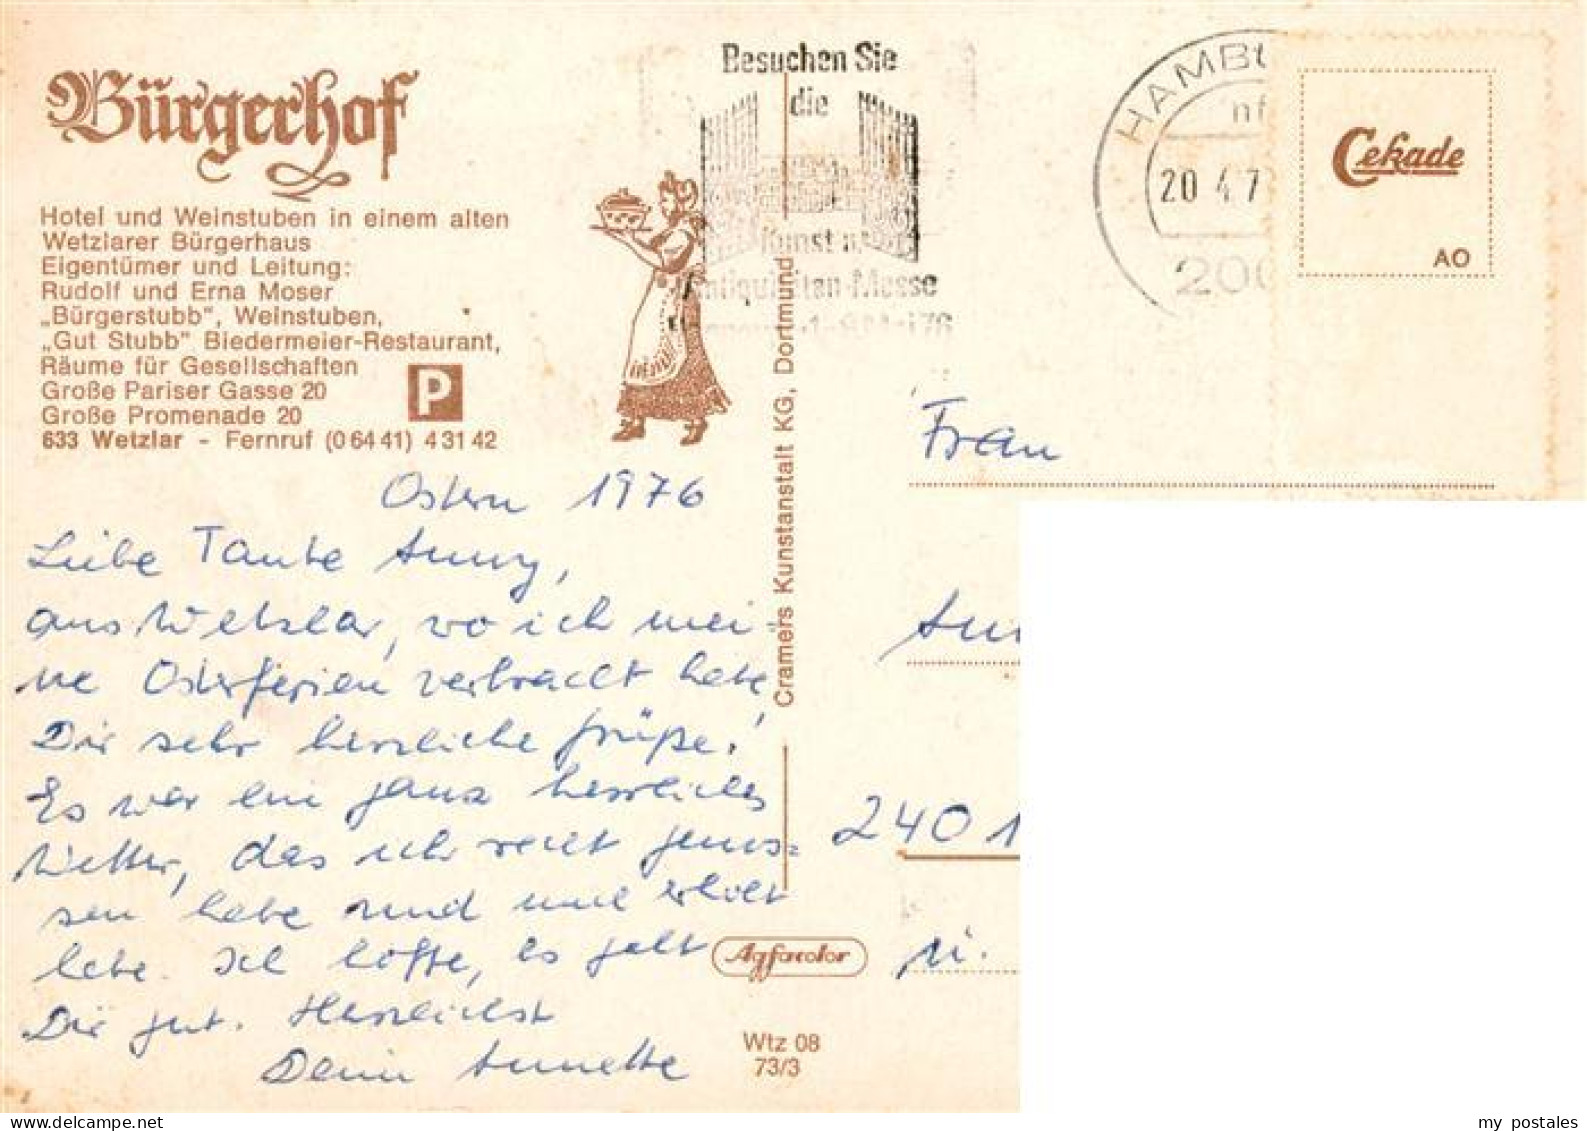 Bürgerhof
Hotel und Weinstuben in einem alten
Wetzlarer Bürgerhaus
Eigentümer und Leitung:
Rudolf und Erna Moser
„Bürgerstubb", Weinstuben,
„Gut Stubb" Biedermeier-Restaurant,
Räume für Gesellschaften
Große Pariser Gasse 20
Große Promenade 20
P
633 Wetzlar - Fernruf (0 64 41) 4 31 42
Besuchen Sie
die
Kunst u.
Antiquitäten-Messe
HAMBU
20 4.7
200
Cekade
AO
Ostern 1976
Liebe Tante Anny,
aus Wetzlar, wo ich mei-
ne Osterferien verbracht habe,
Dir sehr herzliche Grüße!
Es war ein ganz herrliches
Wetter, das ich recht genos-
sen habe und mich erholt
habe. Ich hoffe, es geht
Dir gut. Herzlichst
Deine Annette
Cramers Kunstanstalt KG, Dortmund
Agfacolor
Wtz 08
73/3
Frau
2401
my postales